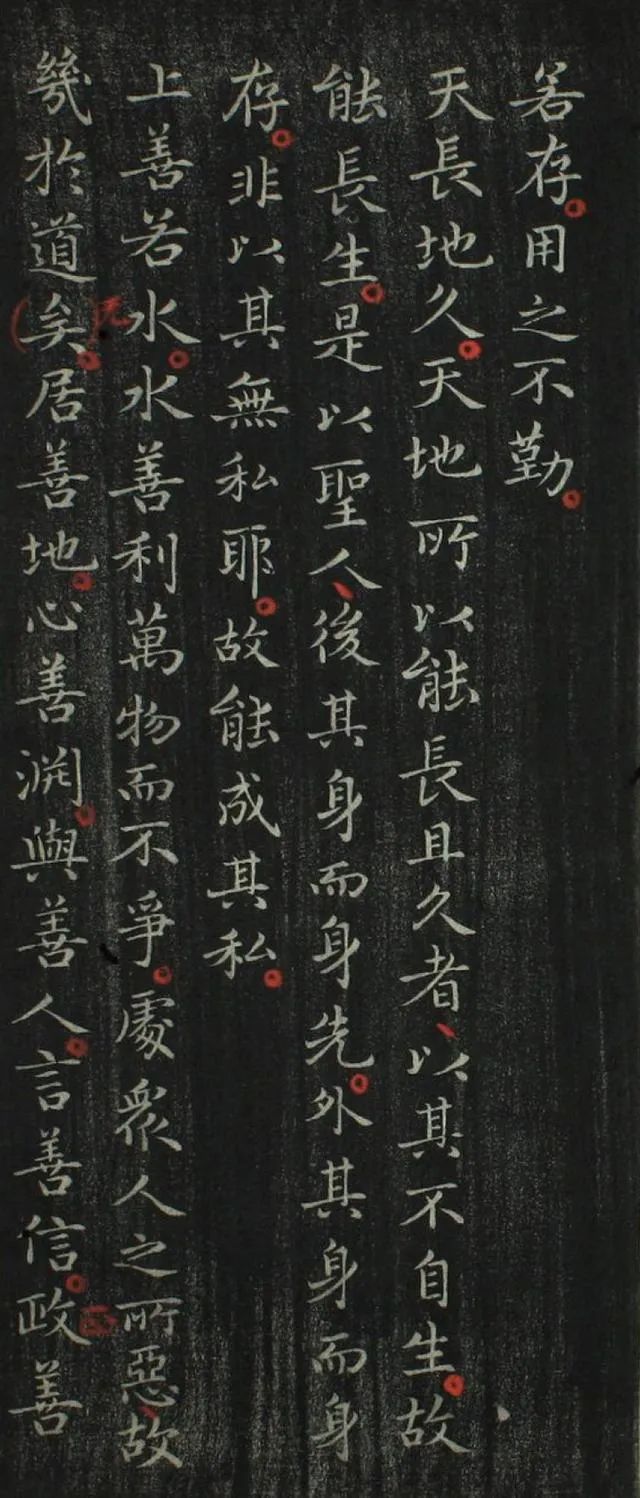 若存。用之不勤。
天長地久。天地所以能長且久者、以其不自生。故
能長生。是以聖人、後其身而身先。外其身而身
存。非以其無私耶。故能成其私。
上善若水。水善利萬物而不爭。處衆人之所惡、故
幾於道矣。居善地。心善淵。與善人。言善信。政善